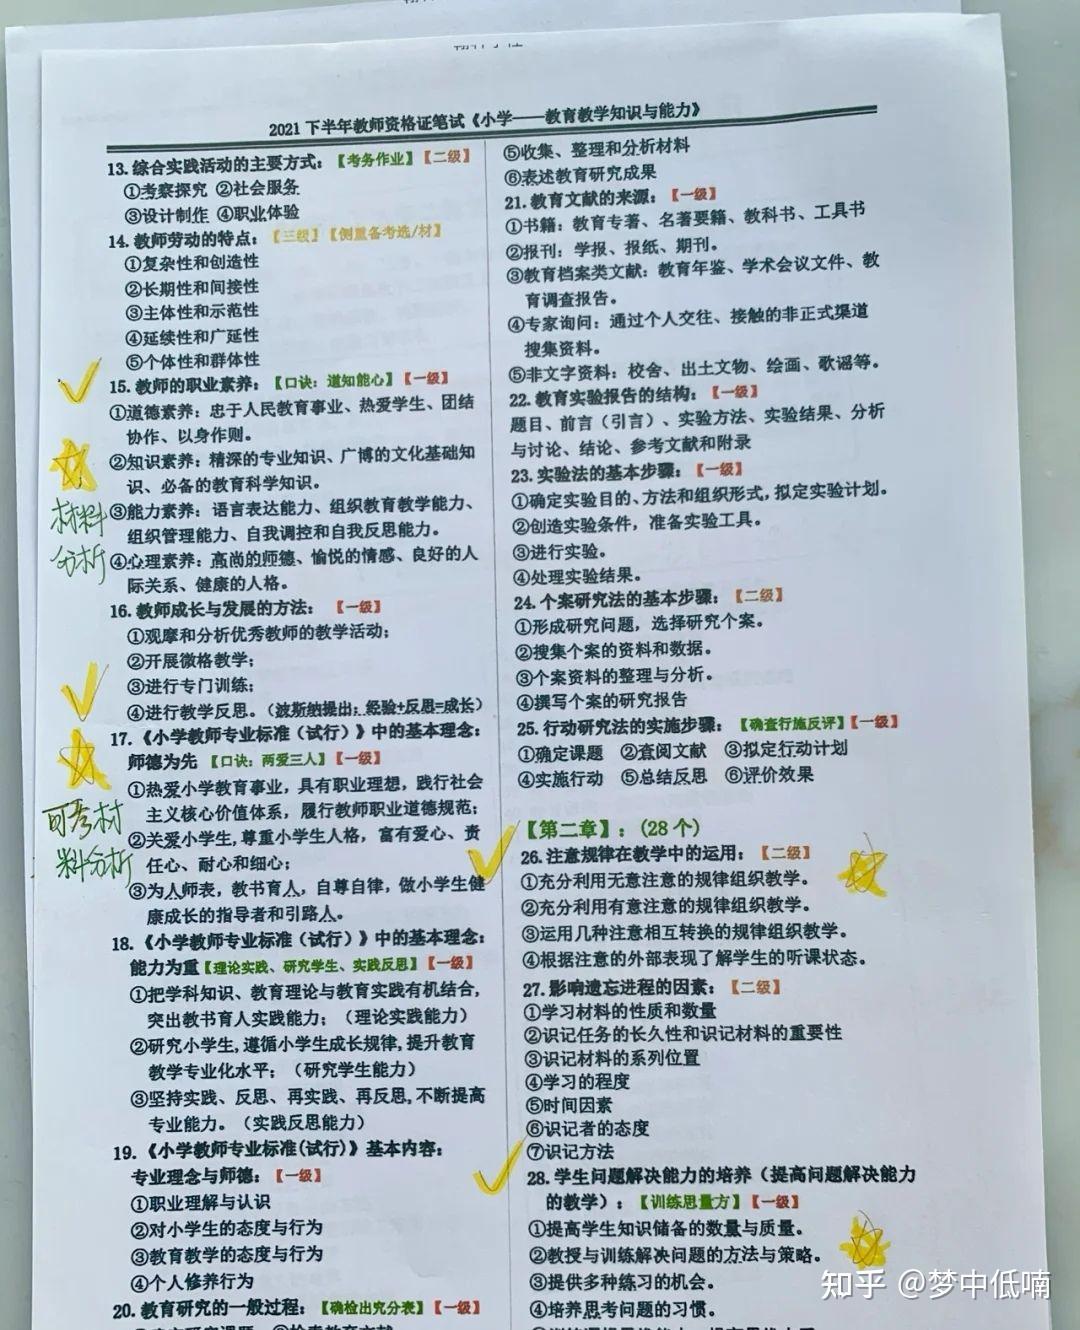 2021 下半年教师资格证笔试《小学——教育教学知识与能力》
13. 综合实践活动的主要方式：【考务作业】【二级】
①考察探究 ②社会服务
③设计制作 ④职业体验
14. 教师劳动的特点：【三级】【侧重备考选/材】
①复杂性和创造性
②长期性和间接性
③主体性和示范性
④延续性和广延性
⑤个体性和群体性
15. 教师的职业素养：【口诀：道知能心】【一级】
①道德素养：忠于人民教育事业、热爱学生、团结
协作、以身作则。
②知识素养：精深的专业知识、广博的文化基础知
识、必备的教育科学知识。
材料
分析
③能力素养：语言表达能力、组织教育教学能力、
组织管理能力、自我调控和自我反思能力。
④心理素养：高尚的师德、愉悦的情感、良好的人
际关系、健康的人格。
16. 教师成长与发展的方法：【一级】
①观摩和分析优秀教师的教学活动；
②开展微格教学；
③进行专门训练；
④进行教学反思。（波斯纳提出：经验+反思=成长）
17.《小学教师专业标准（试行）》中的基本理念：
师德为先【口诀：两爱三人】【一级】
①热爱小学教育事业，具有职业理想，践行社会
主义核心价值体系，履行教师职业道德规范；
可考材
料分析
②关爱小学生，尊重小学生人格，富有爱心、责
任心、耐心和细心；
③为人师表，教书育人，自尊自律，做小学生健
康成长的指导者和引路人。
18.《小学教师专业标准（试行）》中的基本理念：
能力为重【理论实践、研究学生、实践反思】【一级】
①把学科知识、教育理论与教育实践有机结合，
突出教书育人实践能力；（理论实践能力）
②研究小学生，遵循小学生成长规律，提升教育
教学专业化水平；（研究学生能力）
③坚持实践、反思、再实践、再反思，不断提高
专业能力。（实践反思能力）
19.《小学教师专业标准(试行)》基本内容：
专业理念与师德：【一级】
①职业理解与认识
②对小学生的态度与行为
③教育教学的态度与行为
④个人修养行为
20. 教育研究的一般过程：【确检出究分表】【一级】
⑤收集、整理和分析材料
⑥表述教育研究成果
21. 教育文献的来源：【一级】
①书籍：教育专著、名著要籍、教科书、工具书
②报刊：学报、报纸、期刊。
③教育档案类文献：教育年鉴、学术会议文件、教
育调查报告。
④专家询问：通过个人交往、接触的非正式渠道
搜集资料。
⑤非文字资料：校舍、出土文物、绘画、歌谣等。
22. 教育实验报告的结构：【一级】
题目、前言（引言）、实验方法、实验结果、分析
与讨论、结论、参考文献和附录
23. 实验法的基本步骤：【一级】
①确定实验目的、方法和组织形式，拟定实验计划。
②创造实验条件，准备实验工具。
③进行实验。
④处理实验结果。
24. 个案研究法的基本步骤：【二级】
①形成研究问题，选择研究个案。
②搜集个案的资料和数据。
③个案资料的整理与分析。
④撰写个案的研究报告
25. 行动研究法的实施步骤：【确查行施反评】【一级】
①确定课题 ②查阅文献 ③拟定行动计划
④实施行动 ⑤总结反思 ⑥评价效果
【第二章】：(28 个)
26. 注意规律在教学中的运用：【二级】
①充分利用无意注意的规律组织教学。
②充分利用有意注意的规律组织教学。
③运用几种注意相互转换的规律组织教学。
④根据注意的外部表现了解学生的听课状态。
27. 影响遗忘进程的因素：【二级】
①学习材料的性质和数量
②识记任务的长久性和识记材料的重要性
③识记材料的系列位置
④学习的程度
⑤时间因素
⑥识记者的态度
⑦识记方法
28. 学生问题解决能力的培养（提高问题解决能力
的教学）：【训练思量方】【一级】
①提高学生知识储备的数量与质量。
②教授与训练解决问题的方法与策略。
③提供多种练习的机会。
④培养思考问题的习惯。
知乎 @梦中低喃